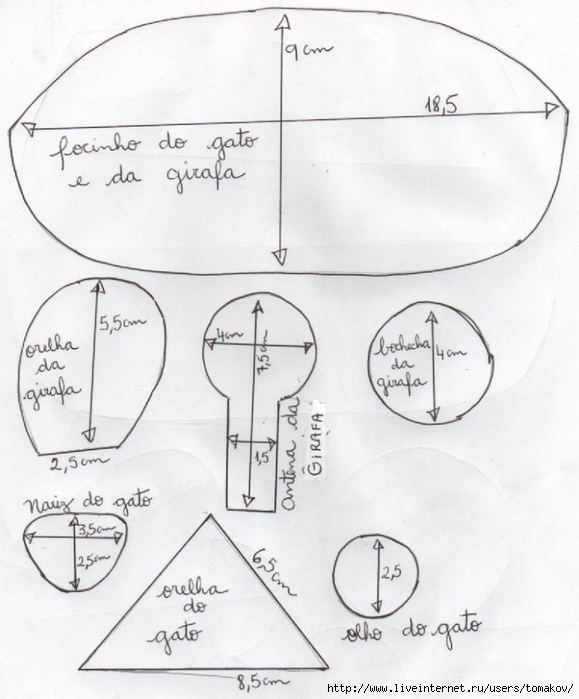 9 cm
18,5
focinho do gato
e da girafa
5,5cm
orelha
da
girafa
2,5cm
4cm
7,5cm
1,5
antena da
GIRAFA
bochecha
da
girafa
4cm
Nariz do gato
3,5cm
2,5cm
6,5cm
orelha
do
gato
8,5cm
2,5
olho do gato
http://www.liveinternet.ru/users/tomakov/